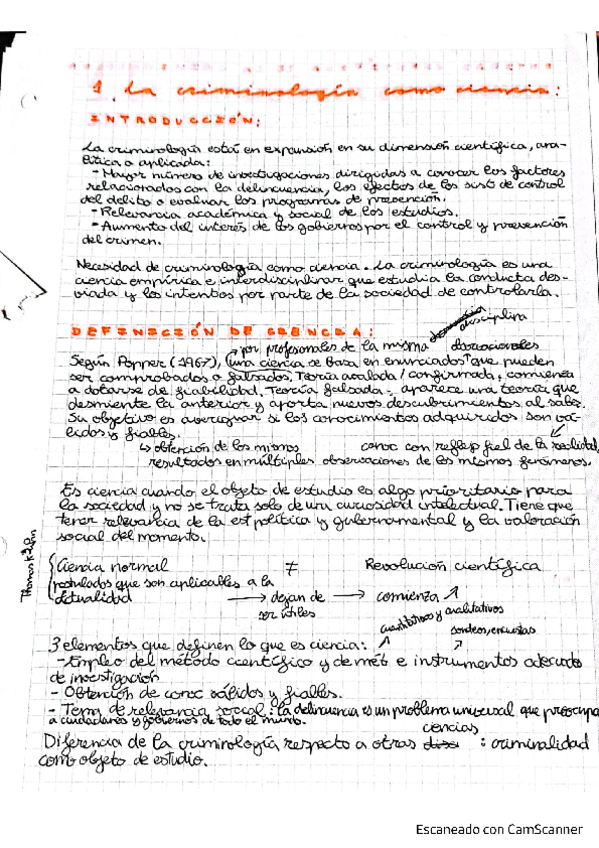 1. La criminología como ciencia:
INTRODUCCIÓN:
La criminología está en expansión en su dimensión científica, ana-
lítica o aplicada:
- Mayor número de investigaciones dirigidas a conocer los factores
relacionados con la delincuencia, los efectos de los sist de control
del delito o evaluar los programas de prevención.
- Relevancia académica y social de los estudios.
- Aumento del interés de los gobiernos por el control y prevención
del crimen.
Necesidad de criminología como ciencia. La criminología es una
ciencia empírica e interdisciplinar que estudia la conducta des-
viada y los intentos por parte de la sociedad de controlarla.
DEFINICIÓN DE CIENCIA:
por profesionales de la misma disciplina
Según Popper (1967), (una ciencia se basa en enunciados que pueden
ser comprobados o falsados. Teoría avalada/confirmada, comienza
a dotarse de fiabilidad. Teoría falsada: aparece una teoría que
desmiente la anterior y aporta nuevos descubrimientos al saber.
Su objetivo es averiguar si los conocimientos adquiridos son vá-
lidos y fiables.
↳ obtención de los mismos conoc con reflejo fiel de la realidad,
resultados en múltiples observaciones de los mismos fenómenos.
Es ciencia cuando el objeto de estudio es algo prioritario para
la sociedad y no se trata solo de una curiosidad intelectual. Tiene que
tener relevancia de la est política y gubernamental y la valoración
social del momento.
Thomas
Ciencia normal ≠ Revolución científica
postulados que son aplicables a la
actualidad → dejan de → comienza ↗
ser útiles
cuantitativos y cualitativos
3 elementos que definen lo que es ciencia: ↗ sondeos, encuestas
- Empleo del método científico y de mét e instrumentos adecuados
de investigación
- Obtención de conoc válidos y fiables.
- Tema de relevancia social: la delincuencia es un problema universal que preocupa
a ciudadanos y gobiernos de todo el mundo.
ciencias
Diferencia de la criminología respecto a otras : criminalidad
como objeto de estudio.
Escaneado con CamScanner